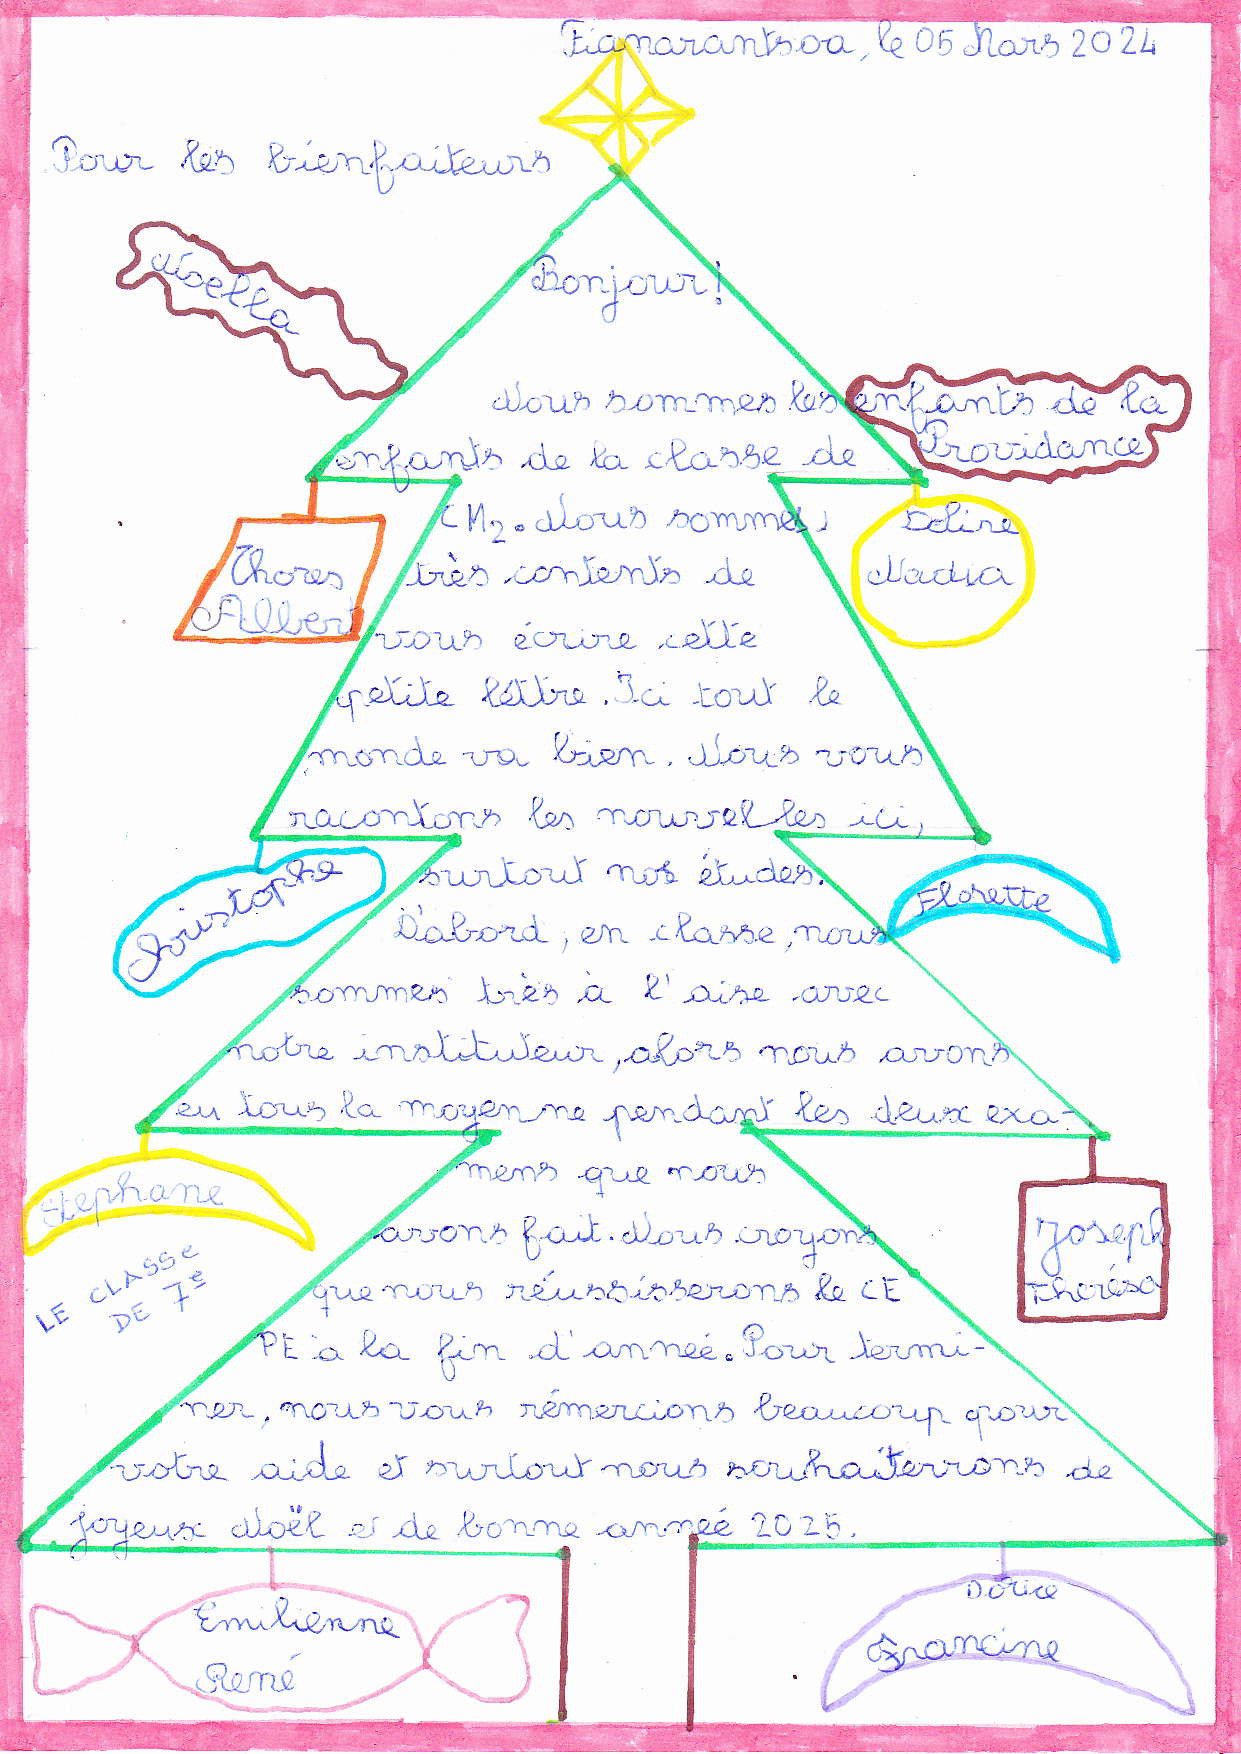 Fianarantsoa, le 05 Mars 2024
Pour les bienfaiteurs
Noella
Bonjour!
Nous sommes les enfants de la
Providance
enfants de la classe de
CM2. Nous sommes
Soline
Nadia
Thores
Albert
très contents de
vous écrire cette
petite léttre. Ici tout le
monde va bien. Nous vous
racontons les nouvelles ici,
surtout nos études.
Christophe
Florette
D'abord, en classe, nous
sommes très à l'aise avec
notre instituteur, alors nous avons
eu tous la moyenne pendant les deux exa-
mens que nous
Stephane
avons fait. Nous croyons
Joseph
Therésa
LE CLASSE
DE 7e
que nous réussisserons le CE
PE à la fin d'anneé. Pour termi-
ner, nous vous rémercions beaucoup pour
votre aide et surtout nous souhaiterrons de
joyeux Noël et de bonne anneé 2025.
Emilienne
René
Dorice
Francine